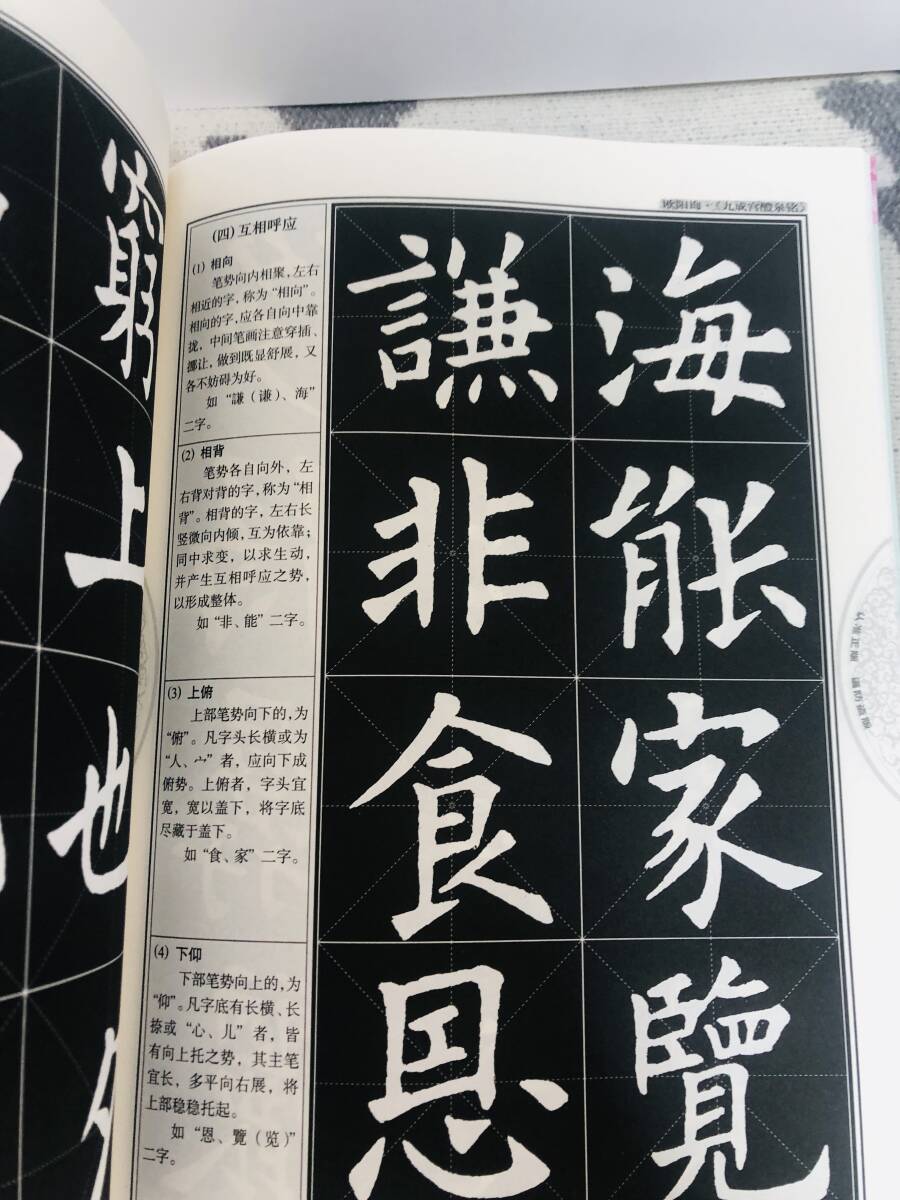 窮
上
也
欧阳询·《九成宫醴泉铭》
(四) 互相呼应
(1) 相向
笔势向内相聚，左右
相近的字，称为“相向”。
相向的字，应各自向中靠
拢，中间笔画注意穿插、
挪让，做到既显舒展，又
各不妨碍为好。
如“謙（谦）、海”
二字。
(2) 相背
笔势各自向外，左
右背对背的字，称为“相
背”。相背的字，左右长
竖微向内倾，互为依靠；
同中求变，以求生动，
并产生互相呼应之势，
以形成整体。
如“非、能”二字。
(3) 上俯
上部笔势向下的，为
“俯”。凡字头长横或为
“人、宀”者，应向下成
俯势。上俯者，字头宜
宽，宽以盖下，将字底
尽藏于盖下。
如“食、家”二字。
(4) 下仰
下部笔势向上的，为
“仰”。凡字底有长横、长
捺或“心、儿”者，皆
有向上托之势，其主笔
宜长，多平向右展，将
上部稳稳托起。
如“恩、覽（览）”
二字。
謙 海
非 能
食 家
恩 覽